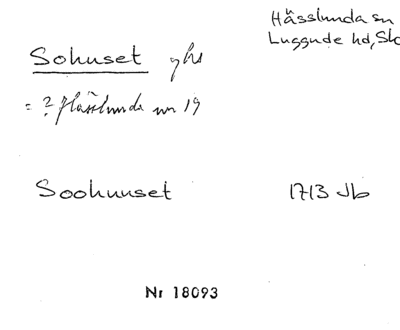 Hässlunda sn
Luggude hd, Sk
Sohuset
= ? Hässlunda nr 19
Soohuuset 1713 Jb
Nr 18093